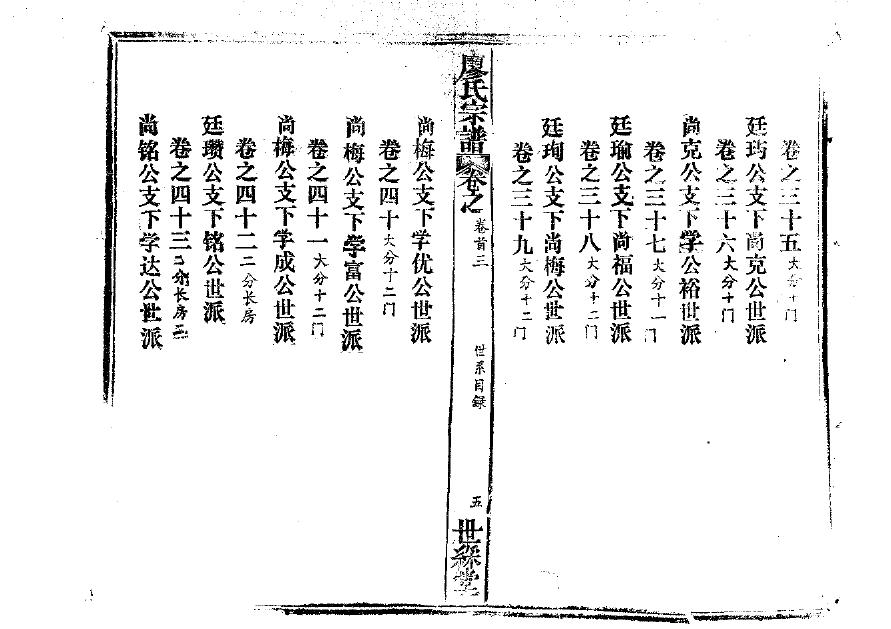 卷之三十五 大分十门
廷巧公支下尚克公世派
卷之三十六 大分十门
尚克公支下学公裕世派
卷之三十七 大分十一门
廷瑜公支下尚福公世派
卷之三十八 大分十二门
廷珣公支下尚梅公世派
卷之三十九 大分十二门
廖氏宗譜 卷之 卷首三 世系目録 五 世綵堂
尚梅公支下学优公世派
卷之四十 大分十二门
尚梅公支下学富公世派
卷之四十一 大分十二门
尚梅公支下学成公世派
卷之四十二 二分长房
廷瓒公支下铭公世派
卷之四十三 二分长房
尚铭公支下学达公世派